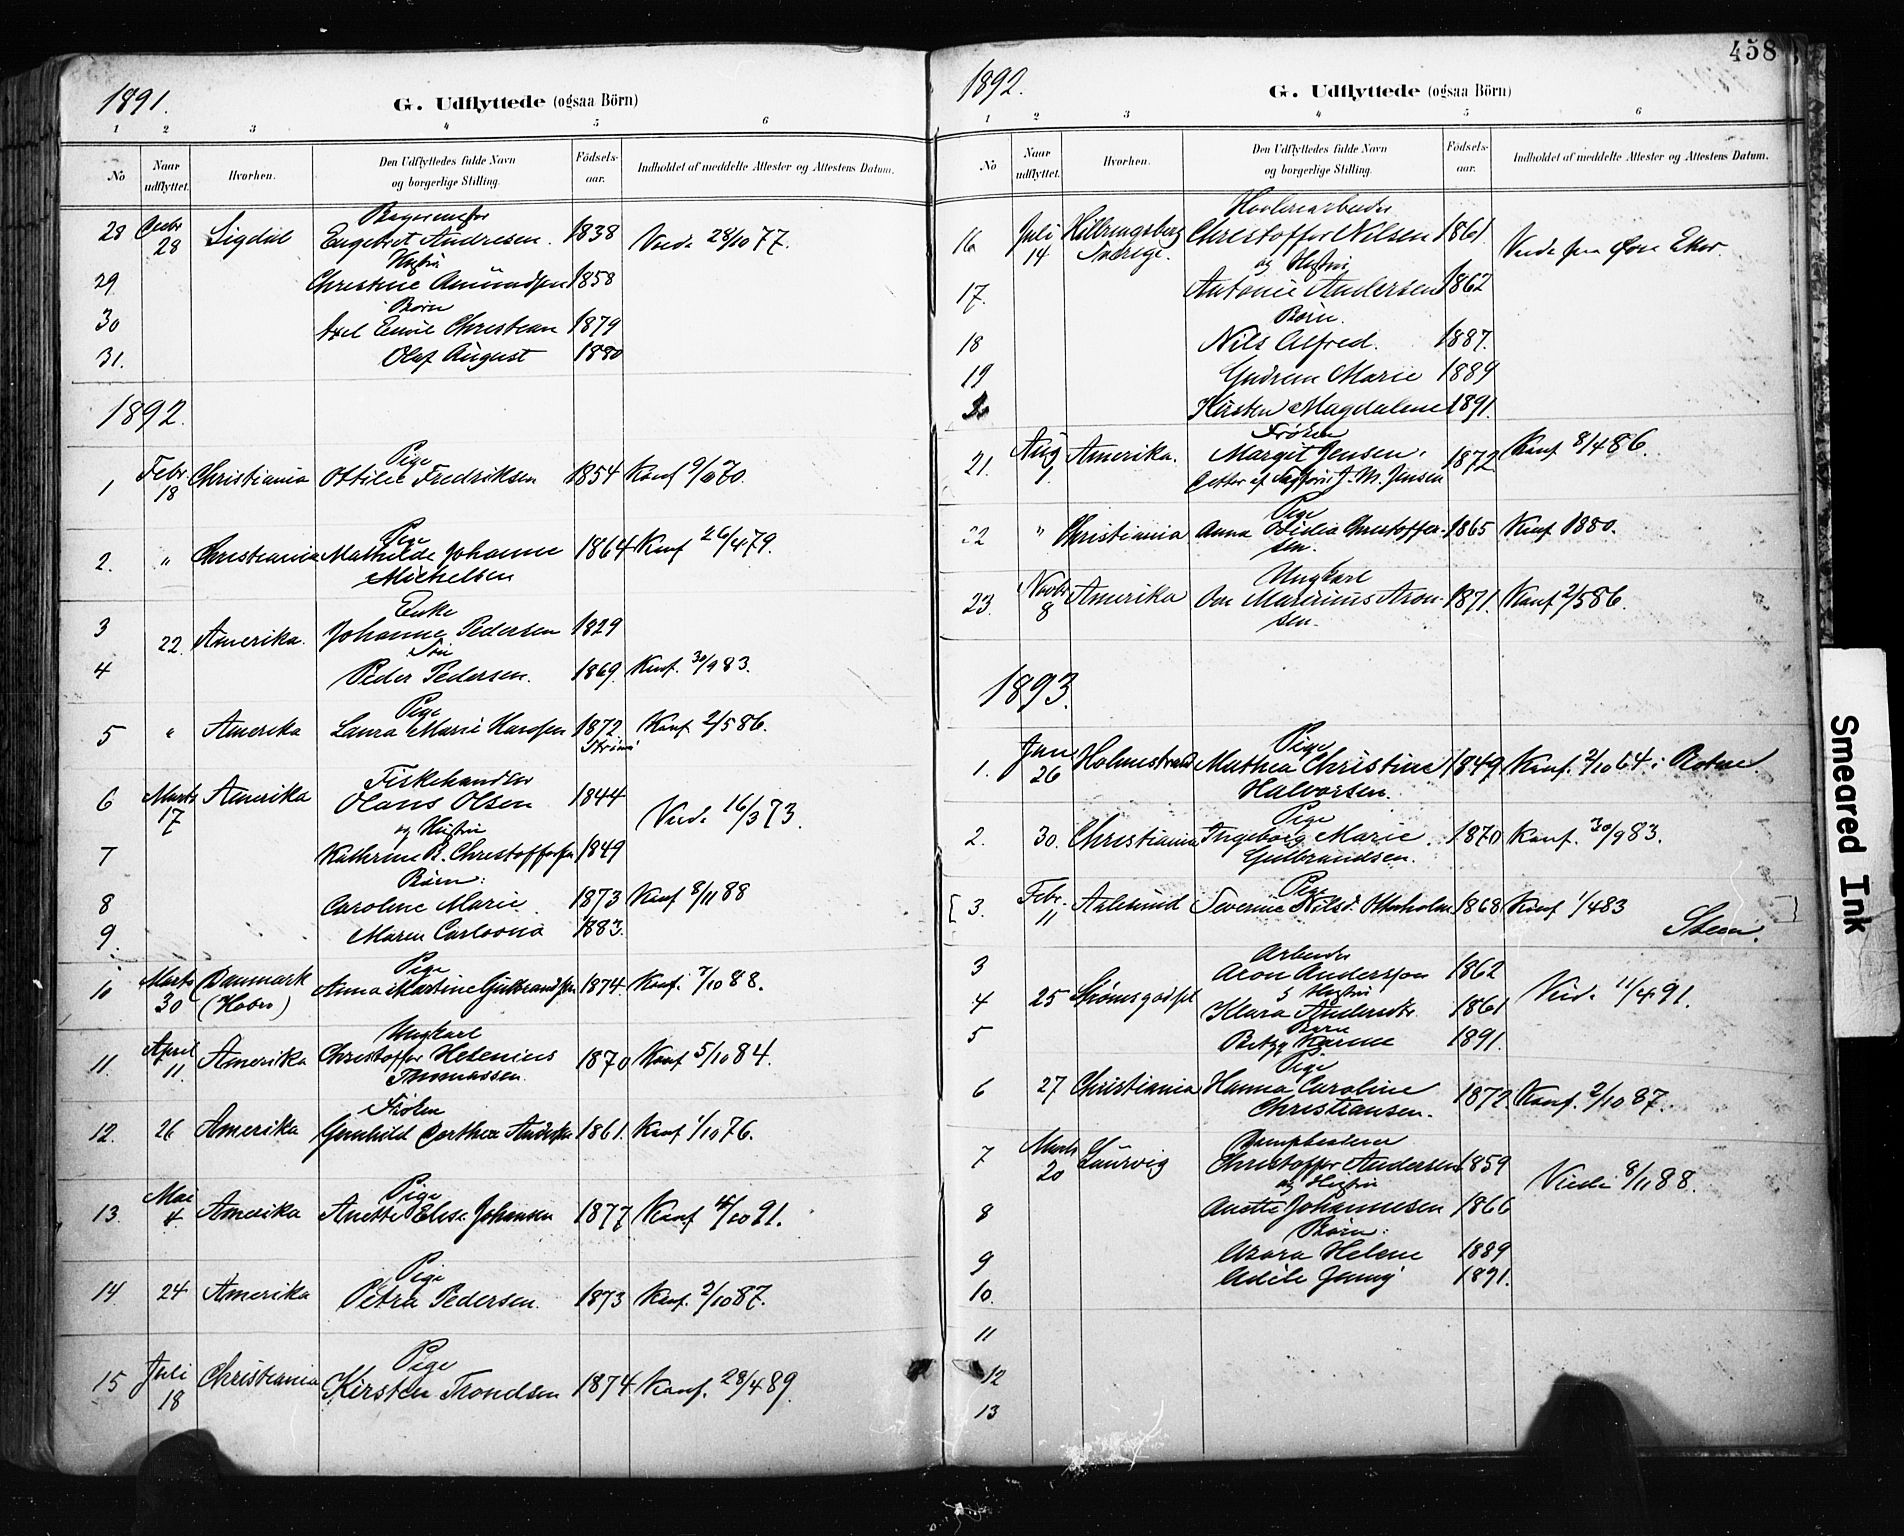 458
1891.
G. Udflyttede (ogsaa Börn)
1 2 3 4 5 6
No
Naar udflyttet.
Hvorhen.
Den Udflyttedes fulde Navn og borgerlige Stilling.
Fødsels-aar.
Indholdet af meddelte Attester og Attestens Datum.
28 Decbr 28 Sigdal
Engebret Andresen. 1838 Vied. 28/10 77.
Hustru
29 Christine Amundsen 1858
Børn
30 Axel Emil Christian 1879
31. Olaf August 1880
1892.
Pige
1 Febr 18 Christiania Ottilie Fredriksen 1854 Konf 9/10 70.
Pige
2. " Christiania Mathilde Johanne 1864 Konf 26/4 79.
Michelsen
Enke
3 22. Amerika. Johanne Pedersen 1829
Søn
4 Peder Pedersen. 1869. Konf. 30/9 83.
Pige
5 " Amerika Laura Marie Hansen 1872. Konf 2/5 86.
Fiskehandler
6 Marts 17 Amerika Olaus Olsen 1844 Vied. 16/3 73.
og Hustru
7 Kathrine B. Christoffersen 1849
Børn:
8 Caroline Marie 1873 Konf 8/11 88
9. Maren 1883.
Pige
10 Marts 30 Danmark (Hobro) Anna Martine Gulbrandsen 1874. Konf. 7/10 88.
Ungkarl
11. April 11. Amerika Christoffer Helenius 1870 Konf 5/10 84.
Thomassen.
Frøken
12. 26 Amerika Gunhild Dorthea Andersen 1861. Konf 1/10 76.
Pige
13. Mai 4. Amerika Anette Elise Johansen 1877 Konf 4/10 91.
Pige
14. 24 Amerika Petra Pedersen. 1873 Konf. 2/10 87.
Pige
15 Juli 18 Christiania Kirsten Trondsen 1874 Konf. 28/4 89.
1892.
G. Udflyttede (ogsaa Börn)
1 2 3 4 5 6
No
Naar udflyttet.
Hvorhen.
Den Udflyttedes fulde Navn og borgerlige Stilling.
Fødsels-aar.
Indholdet af meddelte Attester og Attestens Datum.
Høvleriarbeider
16 Juli 14 Hillringsberg Sverige. Christoffer Nilsen 1861. Vied
og Hustru
17. Antonie Andersen 1862
Børn.
18 Nils Alfred. 1887.
19 Gudrun Marie 1889
20 Kirsten Magdalene 1891.
Frøken
21. Aug 1 Amerika. Margit Jensen. 1872 Konf 8/4 86.
Datter af J. M. Jensen
Pige
22 " Christiania Anna Ovidia Christoffer- 1865 Konf 1880.
sen.
Ungkarl
23. Novbr 8 Amerika Marinius Aron- 1871. Konf 2/5 86.
sen.
1893.
Pige
1. Jan 26 Holmestrand Mathea Christine 1849 Konf. 2/10 64 i Botne.
Halvorsen.
Pige
2. 30. Christiania Ingeborg Marie 1870 Konf. 30/9 83.
Gulbrandsen.
Pige
[ 3. Febr. 11 Aalesund Severine Nilsd. 1868 Konf 1/4 83 ]
Arbeider
3 Aron Anderssen 1862 Vied. 11/4 91.
& Hustru
4 25 Strømsgodset Klara Andersdtr. 1861
Barn
5 Betzy Karine 1891.
Pige
6 27 Christiania Hanna Caroline 1872. Konf. 2/10 87.
Christiansen.
7 Marts 20 Laurvig Christoffer Andersen 1859 Viede 8/11 88.
og Hustru
8 Anette Johannesen 1866
Børn:
9 Asora Helene 1889
10. Adéle Jenny 1891.
11
12
13
Smeared Ink